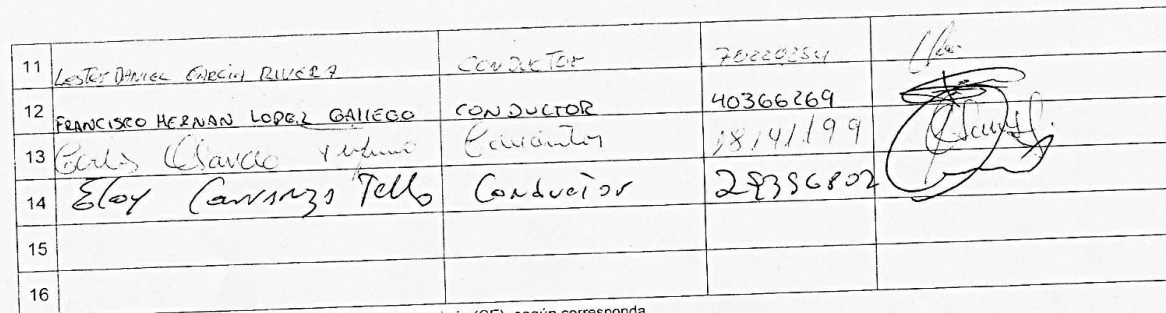 11 LESTER DANIEL GARCIA RIVERA CONDUCTOR 70220254
12 FRANCISCO HERNAN LOPEZ GALLEGO CONDUCTOR 40366269
13 Carlos
14 Eloy Carranza Tello Conductor 29396802
15
16
(CE), según corresponda